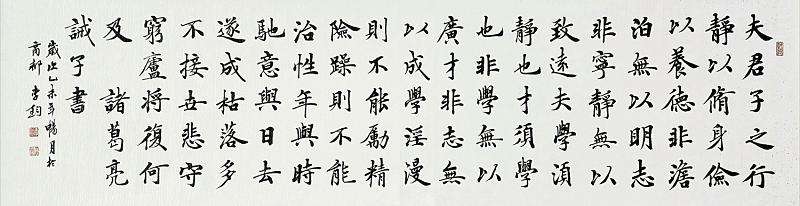 夫君子之行
靜以脩身儉
以養德非澹
泊無以明志
非寧靜無以
致遠夫學湏
靜也才須學
也非學無以
廣才非志無
以成學淫漫
則不能勵精
險躁則不能
治性年與時
馳意與日去
遂成枯落多
不接世悲守
窮廬將復何
及 諸葛亮
誡子書
歲次乙未年暢月於